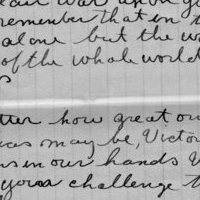 remember that in t
alone but the wo
of the whole world
tter how great ou
was may be, Victor
in our hands
your challenge t